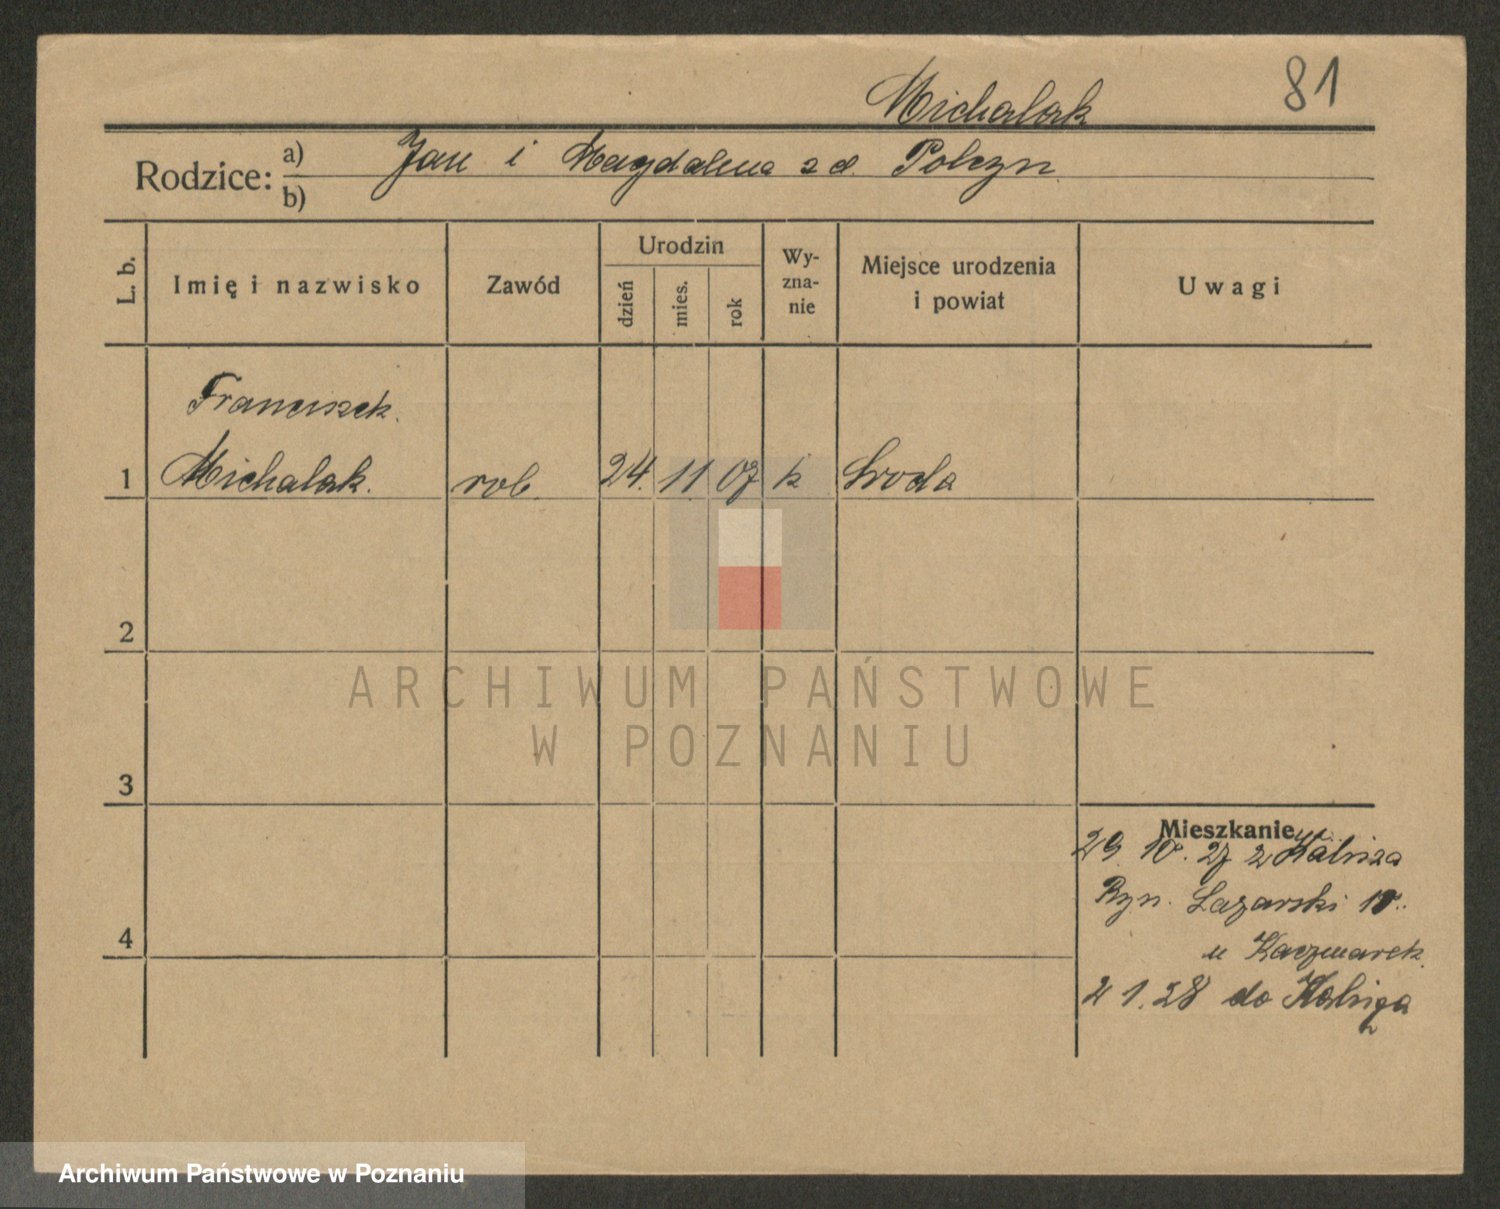 Michalak 81
Rodzice: a) Jan i Magdalena z d. Polczyn
b)
L. b. Imię i nazwisko Zawód Urodzin dzień mies. rok Wy-zna-nie Miejsce urodzenia i powiat Uwagi
Franciszek
1 Michalak rob. 24. 11 07 k Środa
2
ARCHIWUM PAŃSTWOWE
W POZNANIU
3
Mieszkanie
29. 10. 27 z Kalisza
Ryn. Lazarski 10.
4
u Kaczmarek
2 1. 28 do Kalisza
Archiwum Państwowe w Poznaniu